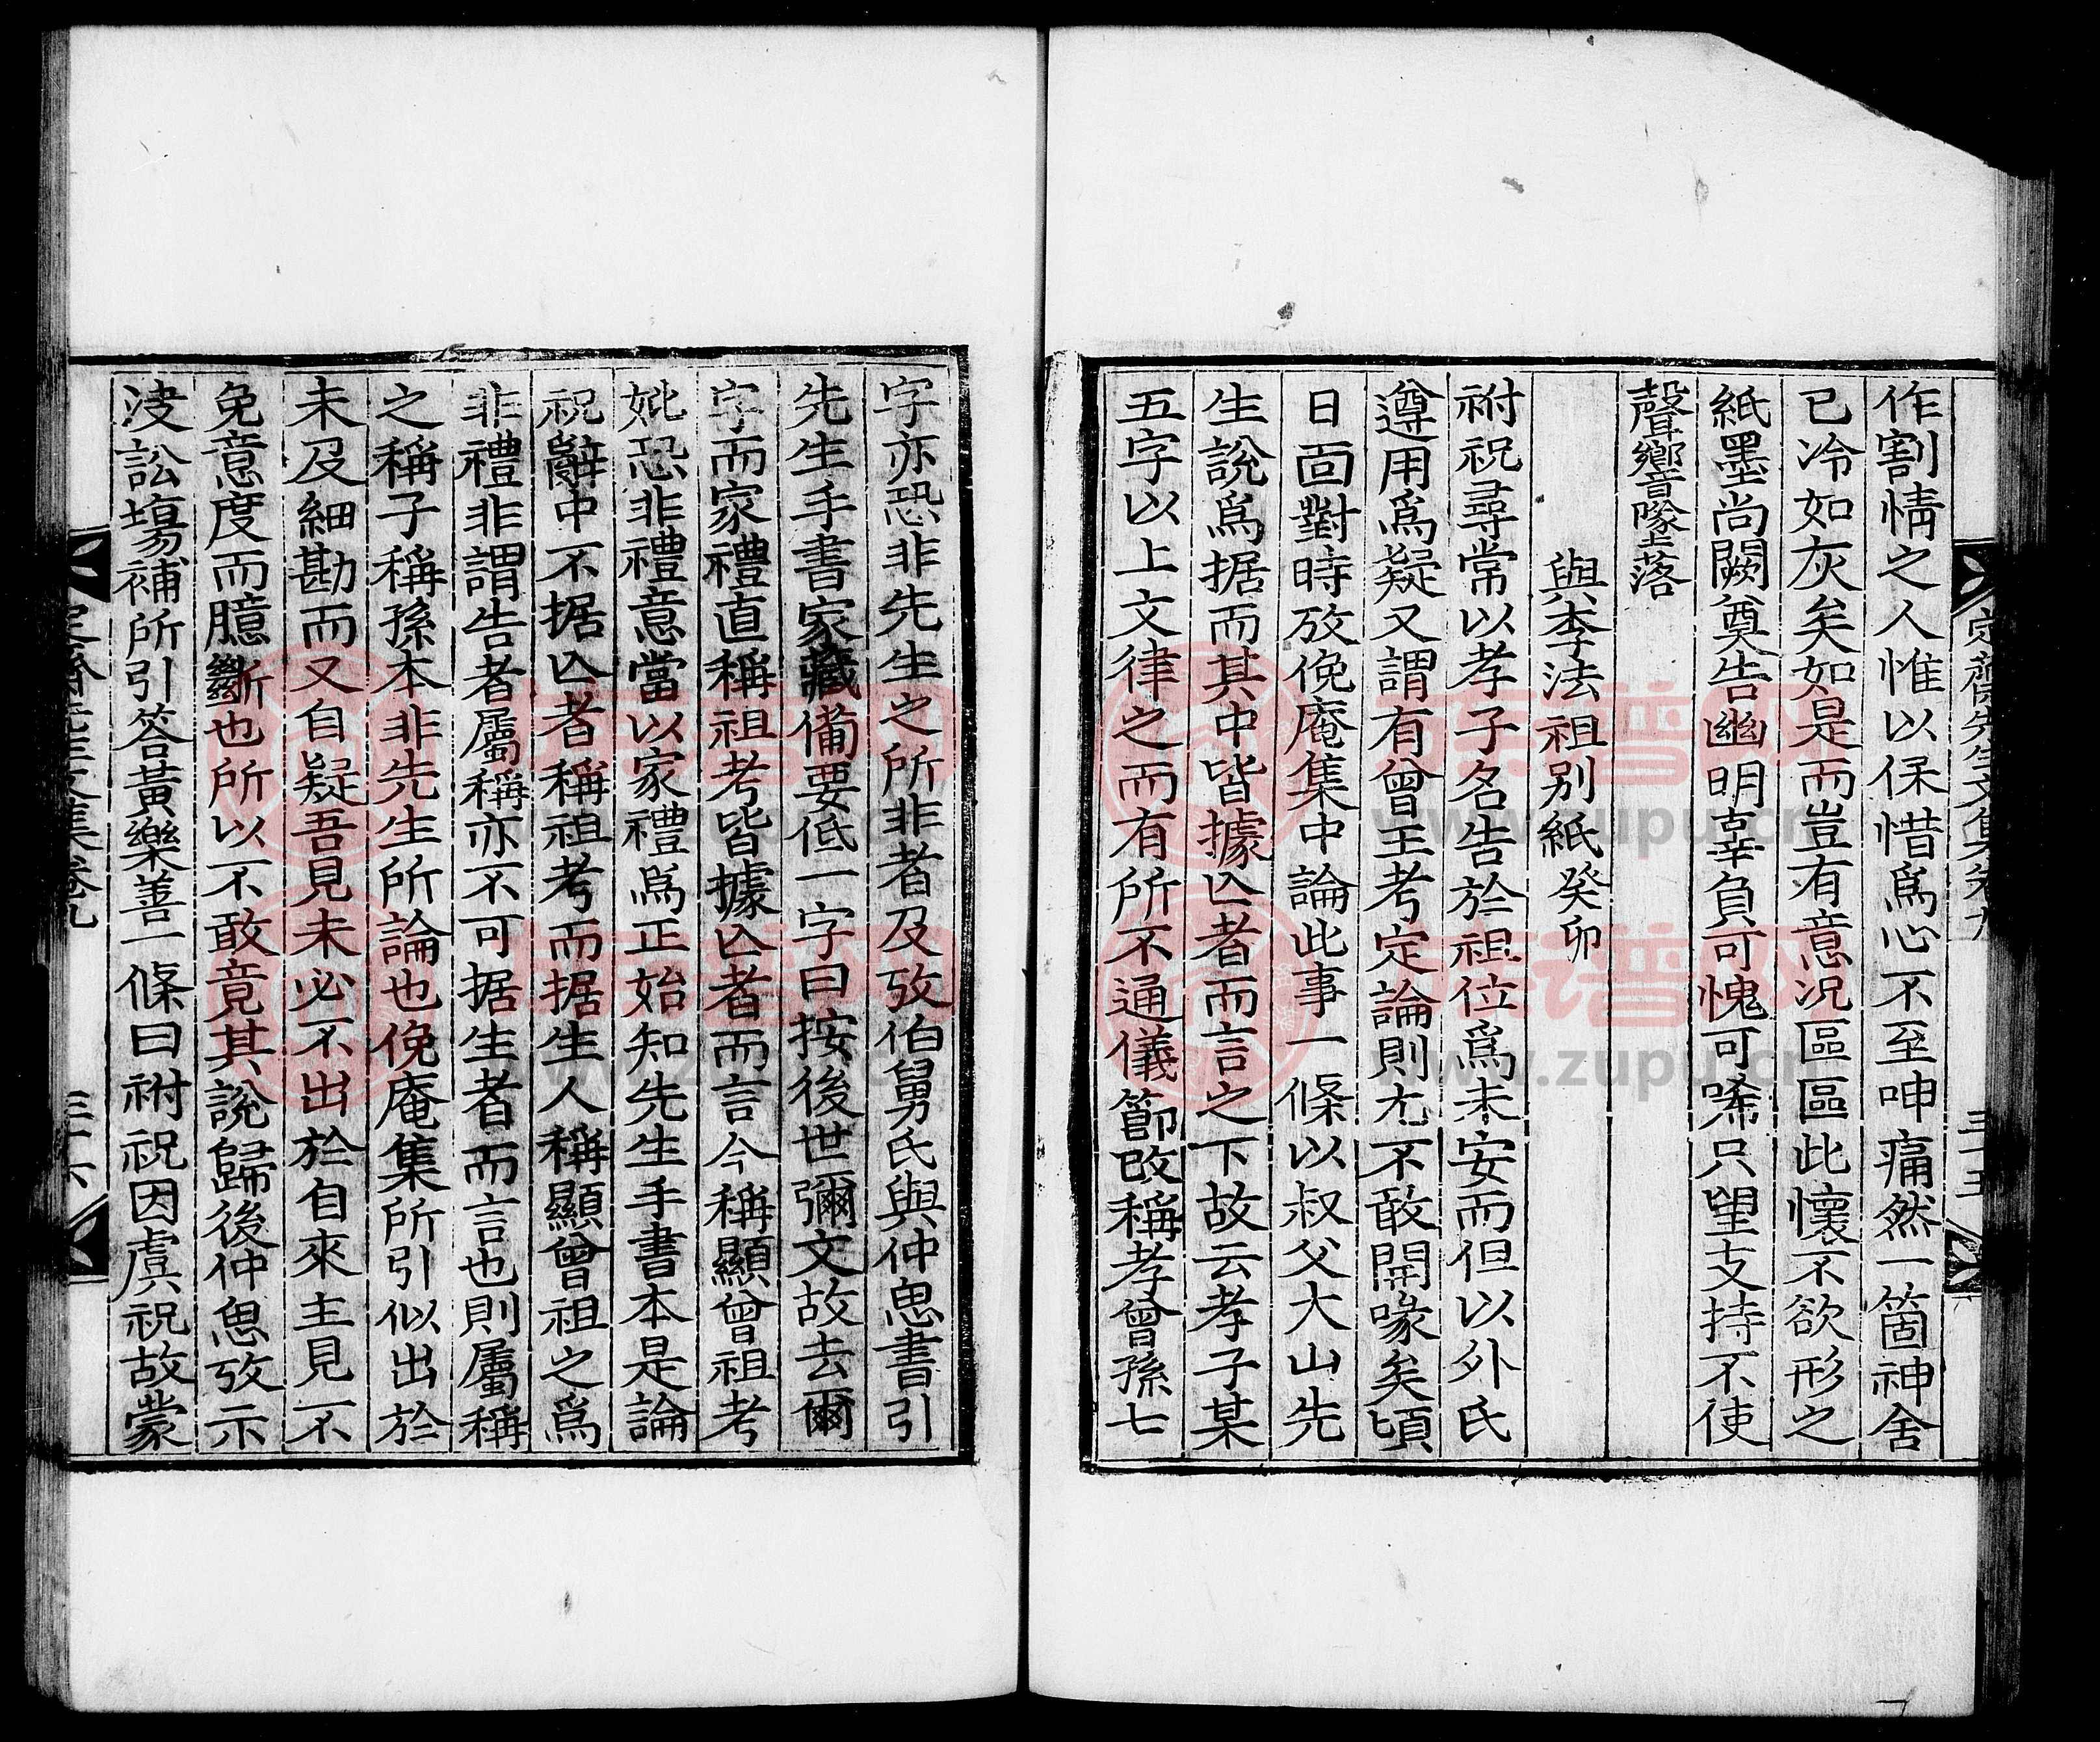 作割情之人惟以保惜爲心不至呻痛然一箇神舍
已冷如灰矣如是而豈有意况區區此懷不欲形之
紙墨尚闕奠告幽明辜負可愧可唏只望支持不使
聲響墜落
與李法祖别紙癸卯
祔祝尋常以孝子名告於祖位爲未安而但以外氏
遵用爲疑又謂有曾王考定論則尤不敢開喙矣頃
日面對時攷俛庵集中論此事一條以叔父大山先
生說爲据而其中皆據亾者而言之下故云孝子某
五字以上文律之而有所不通儀節改稱孝曾孫七
字亦恐非先生之所非者及攷伯舅氏與仲思書引
先生手書家藏備要低一字曰按後世彌文故去爾
字而家禮直稱祖考皆據亾者而言今稱顯曾祖考
妣恐非禮意當以家禮爲正始知先生手書本是論
祝辭中不据亾者稱祖考而据生人稱顯曾祖之爲
非禮非謂告者屬稱亦不可据生者而言也則屬稱
之稱子稱孫本非先生所論也俛庵集所引似出於
未及細勘而又自疑吾見未必不出於自來主見不
免意度而臆斷也所以不敢竟其說歸後仲思攷示
浚訟塲補所引答黃樂善一條曰祔祝因虞祝故蒙
定齋先生文集卷九
三十五
定齋先生文集卷九
三十六
www.zupu.cn
www.zupu.cn
www.zupu.cn
www.zupu.cn